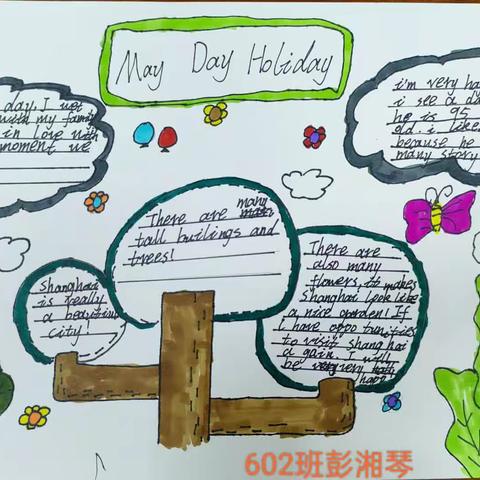 May Day Holiday
day, I wet
with my family
in love with
moment we
i'm very ha
i see a da
he is 95
old. i likes
because he
many story
There are many
tall builings and
trees!
Shanghai
is really
a beautiful
city!
There are
also many
flowers, it makes
Shanghai look like
a nice garden! If
I have oppo tunities
to visit Shang hai
a gain. I will
be very
602班彭湘琴